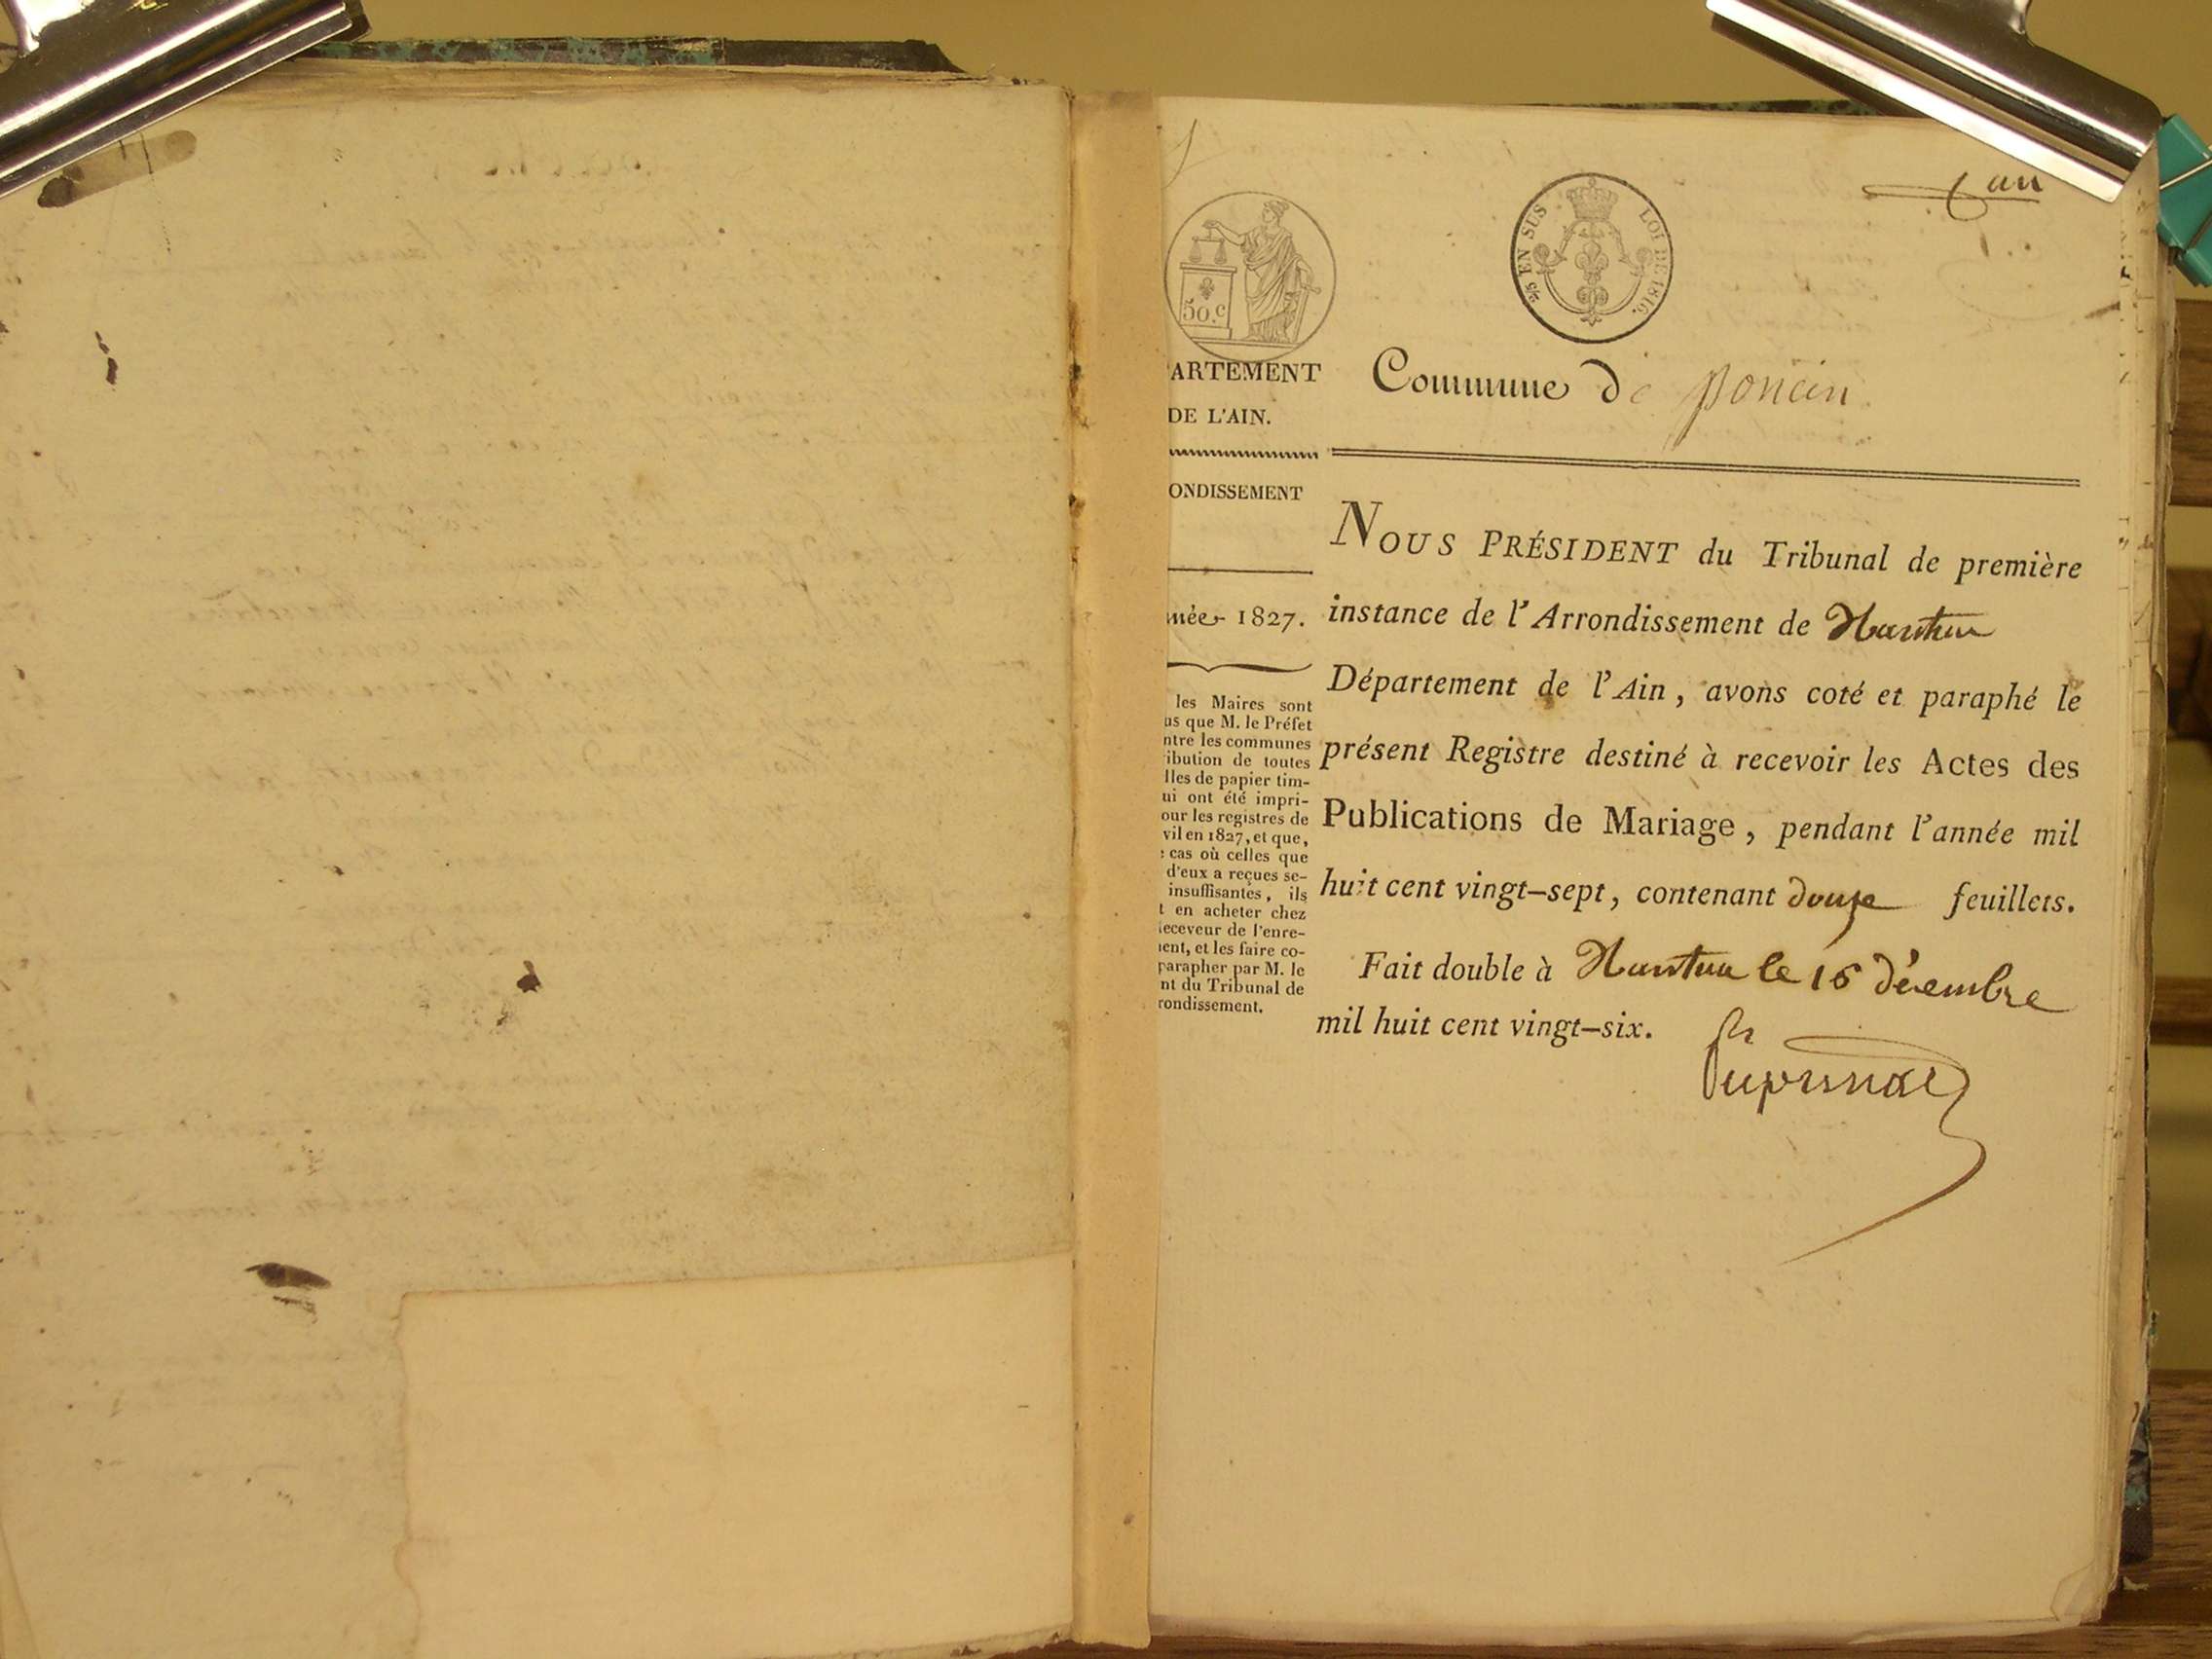 50.c
2/5 EN SUS LOI DE 1816.
un
ARTEMENT
DE L'AIN.
Commune de poncin
ONDISSEMENT
née 1827.
les Maires sont
us que M. le Préfet
ntre les communes
ibution de toutes
lles de papier tim-
ui ont été impri-
our les registres de
vil en 1827, et que,
cas où celles que
d'eux a reçues se-
insuffisantes, ils
t en acheter chez
eceveur de l'enre-
ent, et les faire co-
parapher par M. le
nt du Tribunal de
rondissement.
NOUS PRÉSIDENT du Tribunal de première
instance de l'Arrondissement de Nantua
Département de l'Ain, avons coté et paraphé le
présent Registre destiné à recevoir les Actes des
Publications de Mariage, pendant l'année mil
huit cent vingt-sept, contenant douze feuillets.
Fait double à Nantua le 16 décembre
mil huit cent vingt-six.